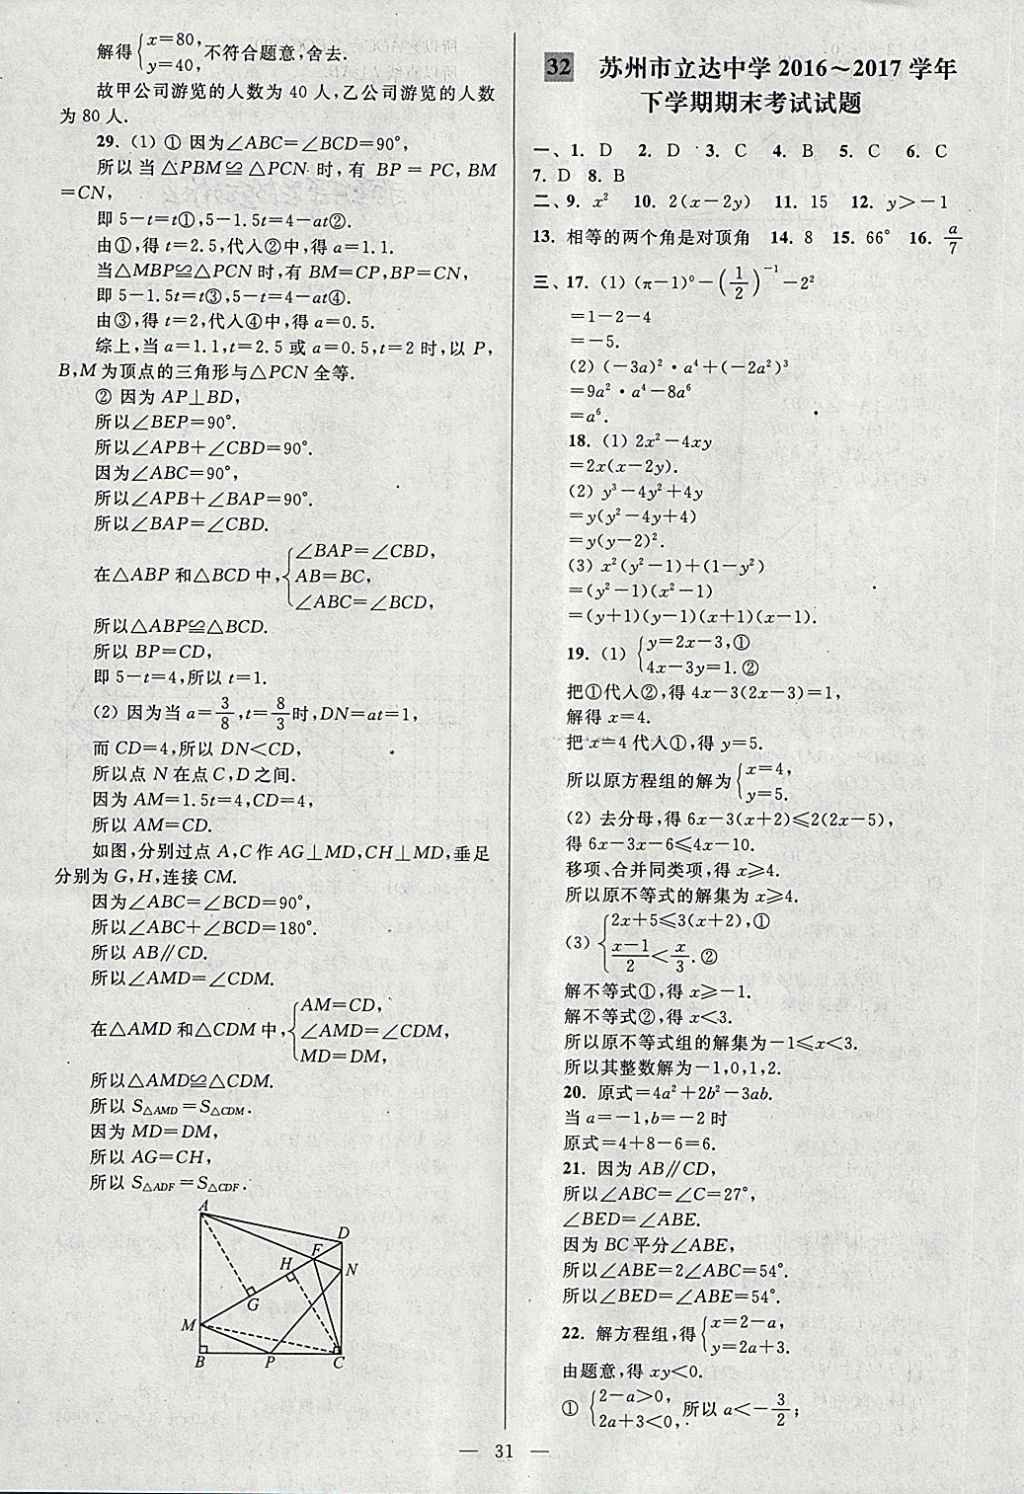 解得{x=80, y=40, 不符合题意,舍去.
故甲公司游览的人数为 40 人,乙公司游览的人数
为 80 人.
29. (1) ① 因为∠ABC=∠BCD=90°,
所以当△PBM≌△PCN 时,有 BP=PC,BM
=CN,
即 5-t=t①,5-1.5t=4-at②.
由①,得 t=2.5,代入②中,得 a=1.1.
当△MBP≌△PCN 时,有 BM=CP,BP=CN,
即 5-1.5t=t③,5-t=4-at④.
由③,得 t=2,代入④中,得 a=0.5.
综上,当 a=1.1,t=2.5 或 a=0.5,t=2 时,以 P,
B,M 为顶点的三角形与△PCN 全等.
② 因为 AP⊥BD,
所以∠BEP=90°.
所以∠APB+∠CBD=90°.
因为∠ABC=90°,
所以∠APB+∠BAP=90°.
所以∠BAP=∠CBD.
在△ABP 和△BCD 中,{∠BAP=∠CBD, AB=BC, ∠ABC=∠BCD,
所以△ABP≌△BCD.
所以 BP=CD,
即 5-t=4,所以 t=1.
(2) 因为当 a=3/8,t=8/3时,DN=at=1,
而 CD=4,所以 DN<CD,
所以点 N 在点 C,D 之间.
因为 AM=1.5t=4,CD=4,
所以 AM=CD.
如图,分别过点 A,C 作 AG⊥MD,CH⊥MD,垂足
分别为 G,H,连接 CM.
因为∠ABC=∠BCD=90°,
所以∠ABC+∠BCD=180°.
所以 AB∥CD.
所以∠AMD=∠CDM.
在△AMD 和△CDM 中,{AM=CD, ∠AMD=∠CDM, MD=DM,
所以△AMD≌△CDM.
所以 S△AMD=S△CDM.
因为 MD=DM,
所以 AG=CH,
所以 S△ADF=S△CDF.
A
D
F
H
N
G
M
B
P
C
32 苏州市立达中学 2016～2017 学年
下学期期末考试试题
一、1. D 2. D 3. C 4. B 5. C 6. C
7. D 8. B
二、9. x² 10. 2(x-2y) 11. 15 12. y>-1
13. 相等的两个角是对顶角 14. 8 15. 66° 16. a/7
三、17. (1) (π-1)⁰-(1/2)⁻¹-2²
=1-2-4
=-5.
(2) (-3a)²·a⁴+(-2a²)³
=9a²·a⁴-8a⁶
=a⁶.
18. (1) 2x²-4xy
=2x(x-2y).
(2) y³-4y²+4y
=y(y²-4y+4)
=y(y-2)².
(3) x²(y²-1)+(1-y²)
=(y²-1)(x²-1)
=(y+1)(y-1)(x+1)(x-1).
19. (1) {y=2x-3,① 4x-3y=1.②
把①代入②,得 4x-3(2x-3)=1,
解得 x=4.
把 x=4 代入①,得 y=5.
所以原方程组的解为{x=4, y=5.
(2) 去分母,得 6x-3(x+2)≤2(2x-5),
得 6x-3x-6≤4x-10.
移项、合并同类项,得 x≥4.
所以原不等式的解集为 x≥4.
(3) {2x+5≤3(x+2),① (x-1)/2<x/3.②
解不等式①,得 x≥-1.
解不等式②,得 x<3.
所以原不等式组的解集为-1≤x<3.
所以其整数解为-1,0,1,2.
20. 原式=4a²+2b²-3ab.
当 a=-1,b=-2 时
原式=4+8-6=6.
21. 因为 AB∥CD,
所以∠ABC=∠C=27°,
∠BED=∠ABE.
因为 BC 平分∠ABE,
所以∠ABE=2∠ABC=54°.
所以∠BED=∠ABE=54°.
22. 解方程组,得{x=2-a, y=2a+3.
由题意,得 xy<0.
① {2-a>0, 2a+3<0, 所以 a<-3/2;
— 31 —